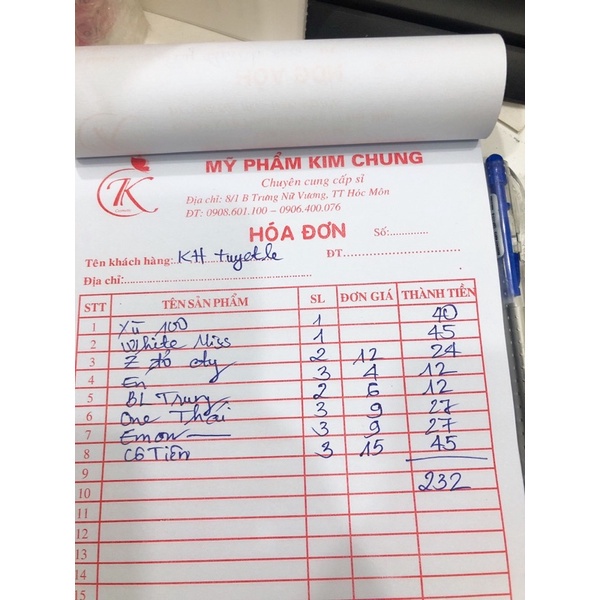 TK
MỸ PHẨM KIM CHUNG
Chuyên cung cấp sỉ
Địa chỉ: 8/1 B Trưng Nữ Vương, TT Hóc Môn
ĐT: 0908.601.100 – 0906.400.076
HÓA ĐƠN
Số:.............
Tên khách hàng: KH tuyetle ĐT..............................
Địa chỉ:..................................................
STT TÊN SẢN PHẨM SL ĐƠN GIÁ THÀNH TIỀN
1 Xù 100 1 40
2 White Miss 1 45
3 đỏ 2 12 24
4 En 3 4 12
5 BL Trung 2 6 12
6 One Thái 3 9 27
7 Emon 3 9 27
8 Cô Tiên 3 15 45
9
10 232
11
12
13
14
15